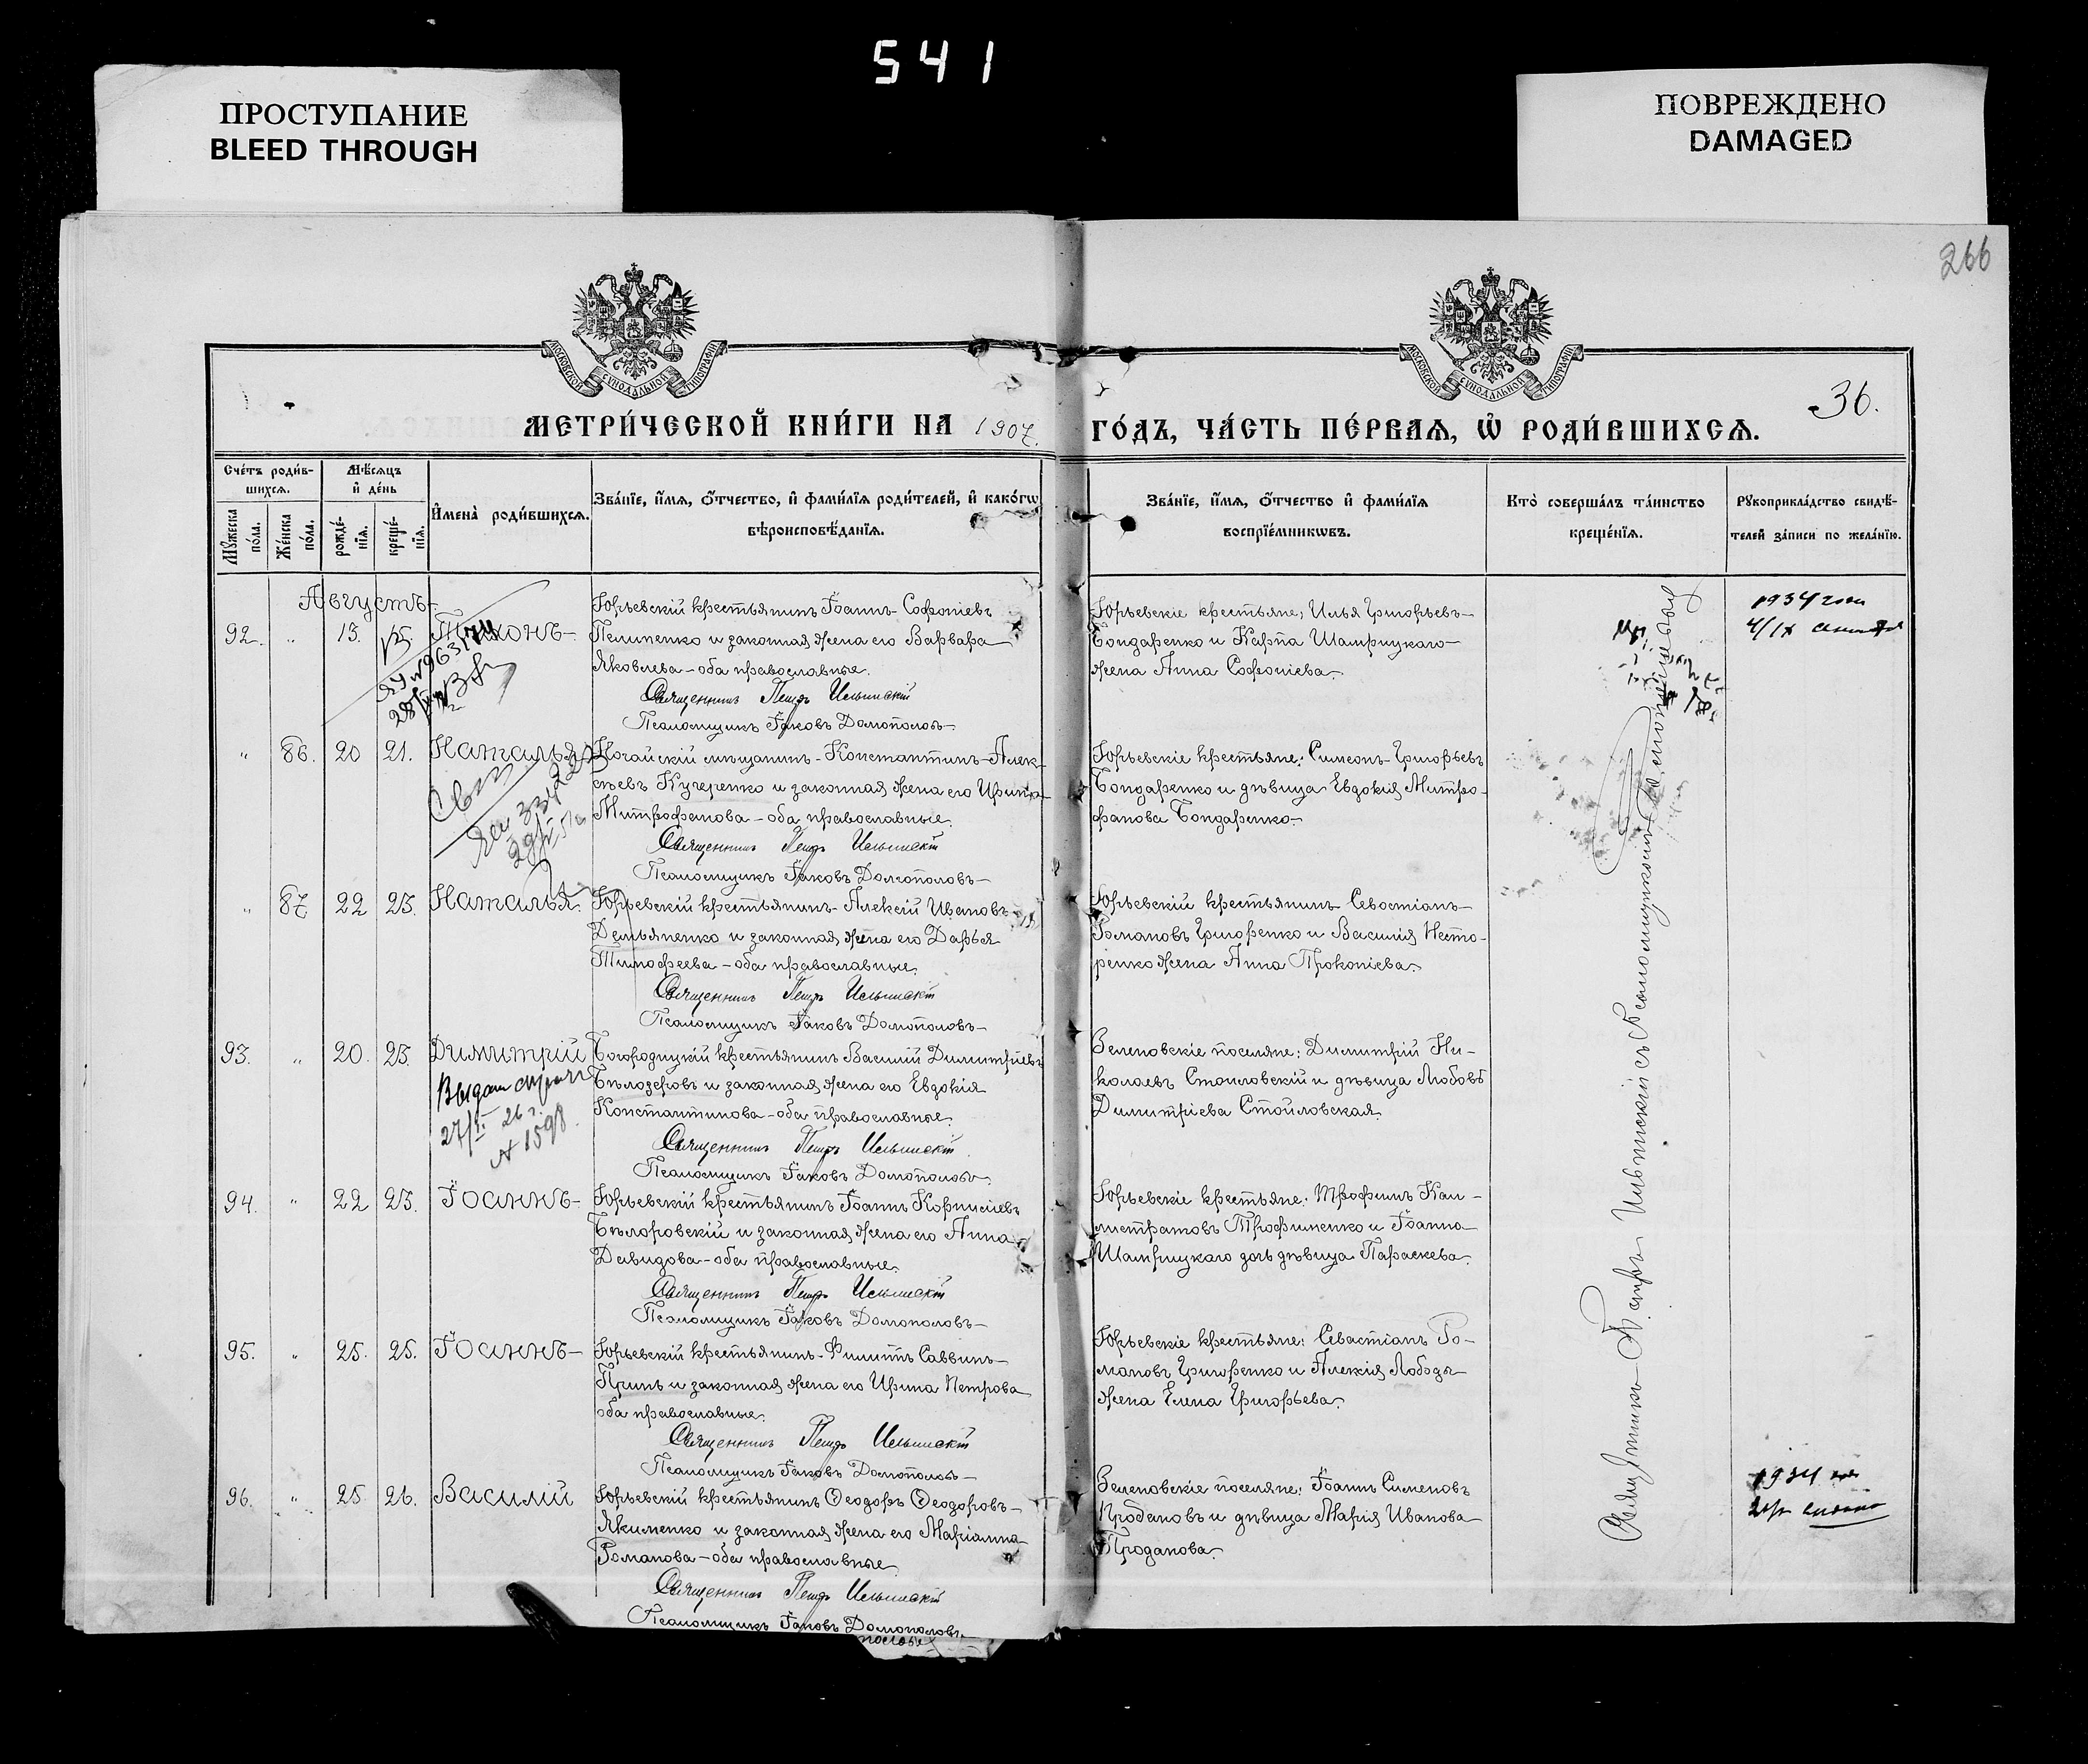 541
ПРОСТУПАНИЕ
BLEED THROUGH
ПОВРЕЖДЕНО
DAMAGED
266
МОСКОВСКОЙ СУНОДАЛЬНОЙ ТИПОГРАФІИ
МОСКОВСКОЙ СУНОДАЛЬНОЙ ТИПОГРАФІИ
36.
МЕТРИ́ЧЕСКОЙ КНИ́ГИ НА 1907. ГО́ДЪ, ЧА́СТЬ ПЕ́РВАѦ, Ѡ҆ РОДИ́ВШИХСѦ.
Сче́тъ роди́в-
шихсѧ.
Мꙋ́жеска по́ла.
Же́нска по́ла.
Мѣ́сѧцъ
и҆ де́нь
рожде́-
нїѧ.
креще́-
нїѧ.
И҆мена̀ роди́вшихсѧ.
Зва́нїе, и҆́мѧ, ѻ҆́тчество, и҆ фами́лїѧ роди́телей, и҆ како́гѡ
вѣроисповѣ́данїѧ.
Зва́нїе, и҆́мѧ, ѻ҆́тчество и҆ фами́лїѧ
воспрїе́мникѡвъ.
Кто̀ соверша́лъ та́инство
креще́нїѧ.
Рꙋкоприкла́дство свидѣ́-
телей за́писи по жела́нїю.
Августъ
92. " 13. 15. Тихонъ
Юрьевскій крестьянинъ Іоаннъ Софоніевъ
Пелипенко и законная жена его Варвара
Яковлева – оба православные.
Священникъ Петръ Ильинскій
Псаломщикъ Іаковъ Домополовъ
Юрьевскіе крестьяне, Илья Григорьевъ
Бондаренко и Карпа Шамрицкаго
жена Анна Софоніева.
1934 года
4/IX
" 86. 20 21. Наталья
Ногайскій мѣщанинъ Константинъ Алек-
сѣевъ Кучеренко и законная жена его Ирина
Митрофанова – оба православные.
Священникъ Петръ Ильинскій
Псаломщикъ Іаковъ Домополовъ
Юрьевскіе крестьяне: Симеонъ Григорьевъ
Бондаренко и дѣвица Евдокія Митро-
фанова Бондаренко.
" 87 22 23. Наталья.
Юрьевскій крестьянинъ Алексій Ивановъ
Демьяненко и законная жена его Дарья
Тимофеева – оба православные.
Священникъ Петръ Ильинскій
Псаломщикъ Іаковъ Домополовъ
Юрьевскій крестьянинъ Севастіанъ
Романовъ Григоренко и Василія Несте-
ренко жена Анна Прокопіева.
93. " 20. 23. Димитрій
Выдан
27/I 26 г.
№ 1598.
Богородицкій крестьянинъ Василій Димитріевъ
Бѣлозеровъ и законная жена его Евдокія
Константинова – оба православные.
Священникъ Петръ Ильинскій
Псаломщикъ Іаковъ Домополовъ
Зеленовскіе поселяне: Димитрій Ни-
колаевъ Стоиловскій и дѣвица Любовь
Димитріева Стоиловская.
94. " 22 23. Іоаннъ
Юрьевскій крестьянинъ Іоаннъ Корниліевъ
Бѣлоровскій и законная жена его Анна
Давидова – оба православные.
Священникъ Петръ Ильинскій
Псаломщикъ Іаковъ Домополовъ
Юрьевскіе крестьяне: Трофимъ Кал-
листратовъ Трофименко и Іоанна
Шамрицкаго дочь дѣвица Параскева.
95. " 25. 25. Іоаннъ
Юрьевскій крестьянинъ Филиппъ Саввинъ
Принь и законная жена его Ирина Петрова
оба православные.
Священникъ Петръ Ильинскій
Псаломщикъ Іаковъ Домополовъ
Юрьевскіе крестьяне: Севастіанъ Ро-
мановъ Григоренко и Алексія Лободы
жена Елена Григорьева.
96. " 25 26. Василій
Юрьевскій крестьянинъ Ѳеодоръ Ѳеодоровъ
Якименко и законная жена его Маріанна
Романова – оба православные
Священникъ Петръ Ильинскій
Псаломщикъ Іаковъ Домополовъ
Зеленовскіе поселяне: Іоаннъ Симеоновъ
Продановъ и дѣвица Марія Иванова
Проданова.
1934
Священникъ Петръ Ильинскій съ Псаломщикомъ